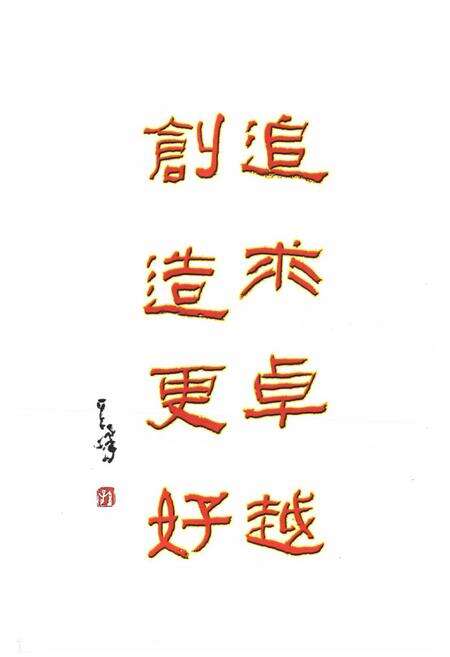 追求卓越
創造更好